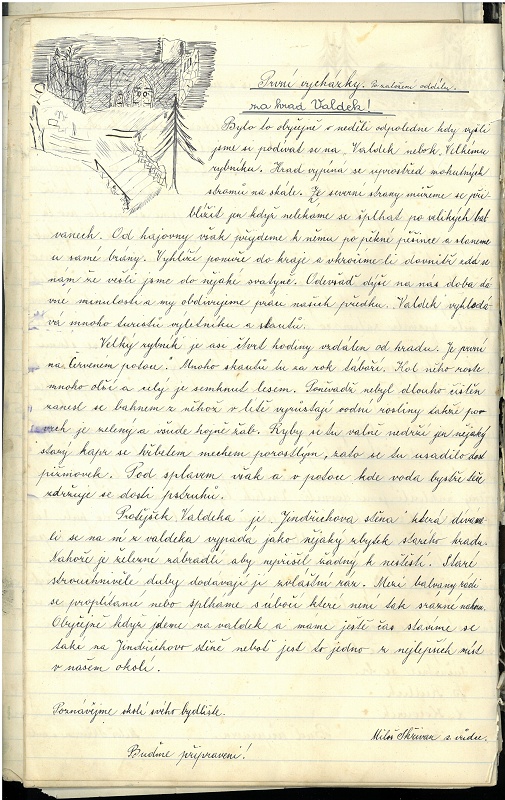 První vycházky. Po založení oddílu.
na hrad Valdek!
Bylo to obyčejně v neděli odpoledne kdy vyšli
jsme si podívat se na „Valdek" neb ok „Velkému
rybníku. Hrad vypíná se uprostřed mohutných
stromů na skále. Ze severní strany můžeme se při-
blížit jen když nelekáme se šplhat po velikých bal-
vanech. Od hajovny však přijdeme k němu po pěkné pěšince a staneme
u samé brány. Vyhlíží ponuře do kraje a vkročíme-li dovnitř zdá se
nam že vešli jsme do nějaké svatyně. Odevšad dýší na nas doba dá-
vne minulosti a my obdivujeme praci našich předku. „Valdek" vyhledá-
vá mnoho turistů výletníku a skautů.
„Velky rybník" je asi čtvrt hodiny vzdálen od hradu. Je první
na „Červenem potou." Mnoho skautů tu za rok táboří. Kol něho roste
mnoho olší a celý je semknut lesem. Poněvadž nebyl dlouho čištěn
zanesl se bahnem z něhož v létě vyrůstají vodní rostliny takže po-
vrch je zelený a všude hojně žab. Ryby se tu valně nedrží jen nějaký
starý kapr se hřbetem mechem porostlým, zato se tu usadilo dost
pižmovek. Pod splavem však a v potoce kde voda bystře teče
zdržuje se dosti pstruhů.
Protějšek „Valdeka" je „Jindřichova stěna" která dívám-
li se na ni z valdeka vypada jako nějaky zbytek starého hradu.
Nahoře je železné zabradlí aby nepřišel žádný k neštěstí. Staré
strouchnivěle duby dodavají jí zvláštní raz. Mezi balvany radi
se proplétame nebo šplháme s úbočí které není tak srazné nahoru.
Obyčejně když jdeme na valdek a mame ještě čas stavíme se
také na Jindřichovo stěně neboť jest to jedno z nejlepších míst
v našem okolí.
Poznávejme okolí svého bydliště.
Miloš Skřivan s. vůdce.
Buďme připraveni!